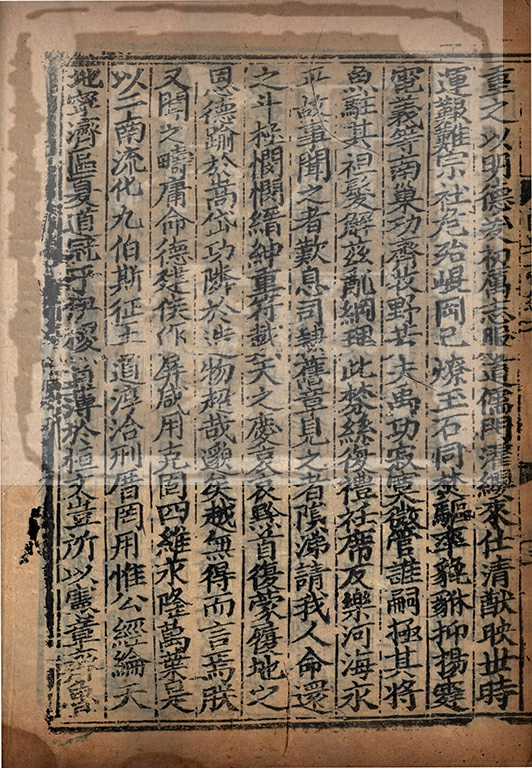 重之以明德爰初厲志服道儒門濯纓來仕清猷映世時
運艱難宗社危殆崐岡已燎玉石同焚驅率貔貅抑揚霆
電義等南巢功齊牧野若夫禹功寂寞微管誰嗣拯其將
魚駈其袒髮解茲亂網理此棼絲復禮衽席反樂河海永
平故事聞之者歎息司隸舊章見之者隕涕請我人命還
之斗極憫憫縉紳重荷戴天之慶哀哀黔首復蒙履地之
恩德踰於嵩岱功隣於造物超哉邈矣越無得而言焉朕
又聞之疇庸命德建侯作屏咸用克固四維永隆萬葉是
以二南流化九伯斯征王道淳洽刑厝罔用惟公經綸天
地寧濟區夏道冠乎伊稷賞薄於桓文豈所以憲章齊魯